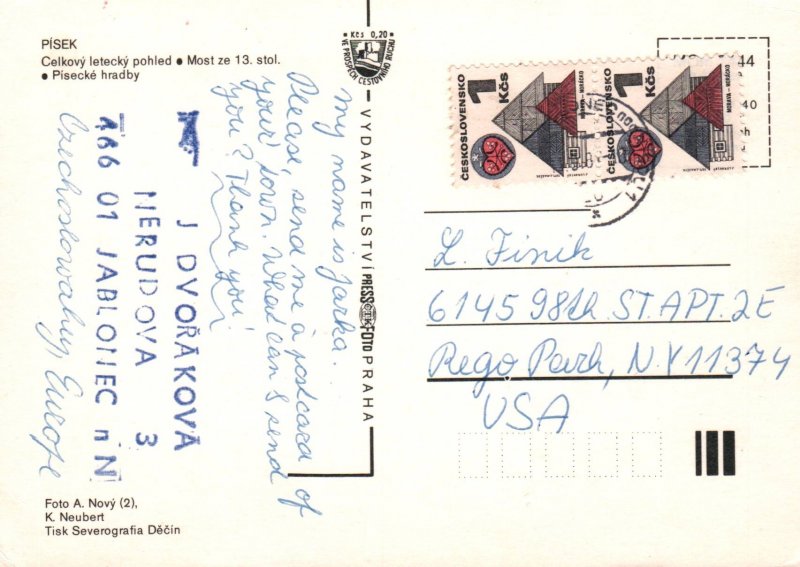 PÍSEK
Celkový letecký pohled ● Most ze 13. stol.
● Písecké hradby
Kčs 0,20
VE PROSPĚCH CESTOVNÍHO RUCHU
My name is Jarka.
Please, send me a postcard of
your town. What can I send
you? Thank you!
J DVOŘÁKOVÁ
NERUDOVA 3
466 01 JABLONEC n N
Czechoslovakia, Europe
VYDAVATELSTVÍ PRESSFOTO PRAHA
ČESKOSLOVENSKO
1 Kčs
MORAVA – HORÁCKO
ČESKOSLOVENSKO
1 Kčs
MORAVA – HORÁCKO
44
40
h
L. Finik
6145 98th. ST. APT. 2E
Rego Park, N.Y 11374
USA
Foto A. Nový (2),
K. Neubert
Tisk Severografia Děčín